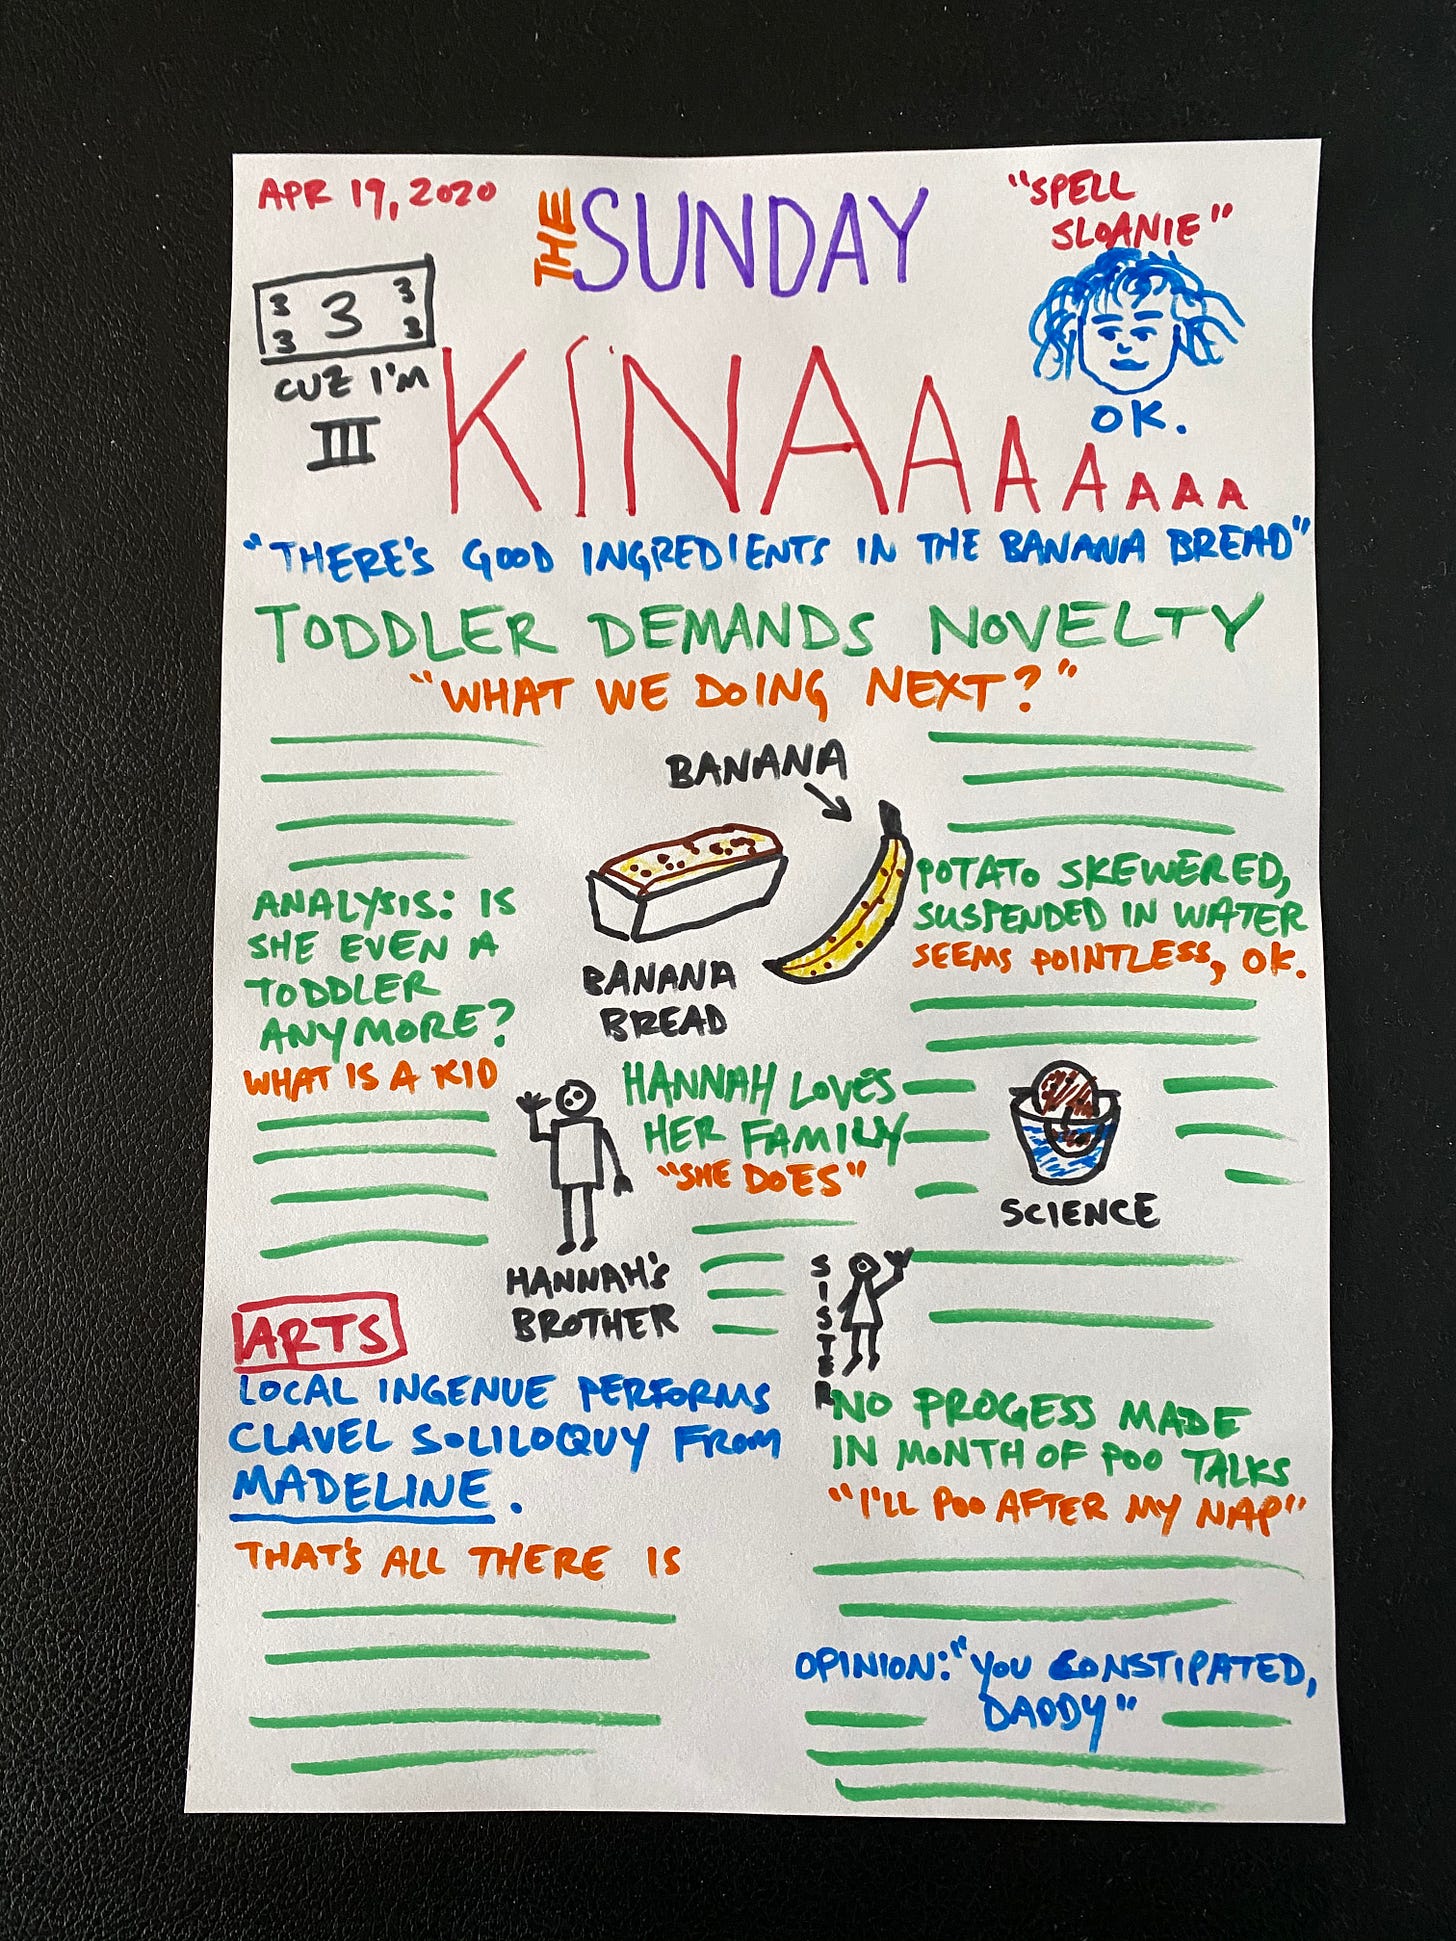 APR 19, 2020
THE SUNDAY
"SPELL
SLOANIE"
3 3
3
3 3
CUZ I'M
III
OK.
KINAAAAAAA
"THERE'S GOOD INGREDIENTS IN THE BANANA BREAD"
TODDLER DEMANDS NOVELTY
"WHAT WE DOING NEXT?"
BANANA
BANANA
BREAD
ANALYSIS: IS
SHE EVEN A
TODDLER
ANYMORE?
WHAT IS A KID
POTATO SKEWERED,
SUSPENDED IN WATER
SEEMS POINTLESS, OK.
HANNAH LOVES
HER FAMILY
"SHE DOES"
HANNAH'S
BROTHER
SCIENCE
SISTER
ARTS
LOCAL INGENUE PERFORMS
CLAVEL SOLILOQUY FROM
MADELINE.
THAT'S ALL THERE IS
NO PROGESS MADE
IN MONTH OF POO TALKS
"I'LL POO AFTER MY NAP"
OPINION: "YOU CONSTIPATED,
DADDY"